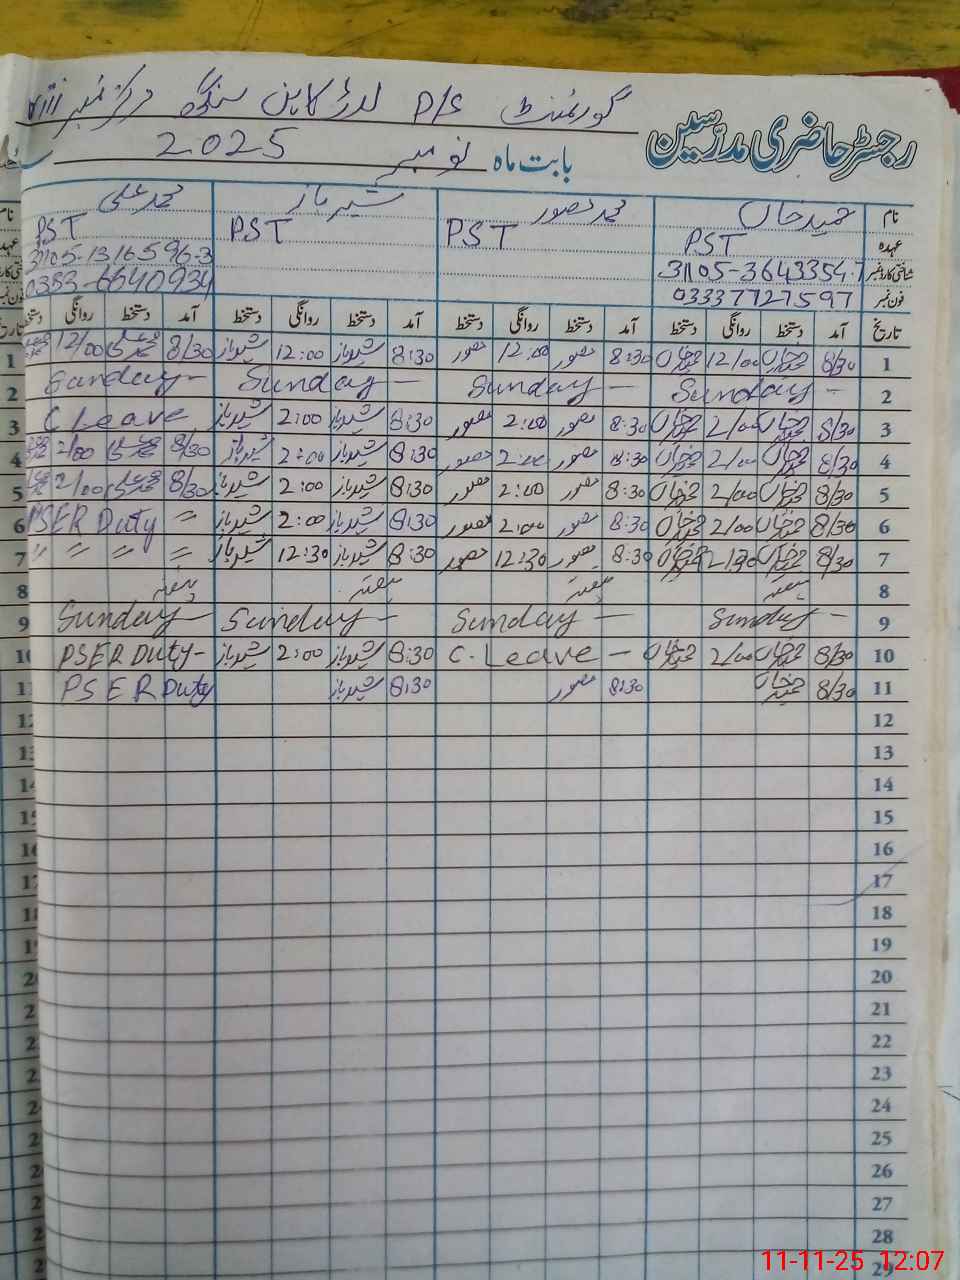 گورنمنٹ P/S
رجسٹر حاضری مدرسین
بابت ماہ نومبر 2025
نام حمید خاں محمد منصور شیر باز محمد علی
عہدہ PST PST PST PST
شناختی کارڈ نمبر 31105-3643354-7 31105-1316596-3
فون نمبر 03337727597 0333-6640934
تاریخ آمد دستخط روانگی دستخط آمد دستخط روانگی دستخط آمد دستخط روانگی دستخط آمد دستخط روانگی دستخط
1 8/30 حمید خاں 12/00 حمید خاں 8:30 منصور 12:00 منصور 8:30 شیر باز 12:00 شیر باز 8/30 محمد علی 12/00
2 Sunday – Sunday – Sunday – Sunday –
3 8/30 حمید خاں 2/00 حمید خاں 8:30 منصور 2:00 منصور 8:30 شیر باز 2:00 شیر باز C Leave
4 8/30 حمید خاں 2/00 حمید خاں 8:30 منصور 2:00 منصور 8:30 شیر باز 2:00 شیر باز 8/30 محمد علی 2/00
5 8/30 حمید خاں 2/00 حمید خاں 8:30 منصور 2:00 منصور 8:30 شیر باز 2:00 شیر باز 8/30 محمد علی 2/00
6 8/30 حمید خاں 2/00 حمید خاں 8:30 منصور 2:00 منصور 8:30 شیر باز 2:00 شیر باز PSER Duty 〃
7 8/30 حمید خاں حمید خاں 8:30 منصور 12:30 منصور 8:30 شیر باز 12:30 شیر باز 〃 〃 〃 〃
8 ہفتہ ہفتہ ہفتہ ہفتہ
9 Sunday – Sunday – Sunday – Sunday –
10 8/30 حمید خاں 2/00 حمید خاں C. Leave – 8:30 شیر باز 2:00 شیر باز PSER Duty –
11 8/30 حمید خاں 8:30 منصور 8:30 شیر باز PSER Duty
12
13
14
15
16
17
18
19
20
21
22
23
24
25
26
27
28
29
11-11-25 12:07